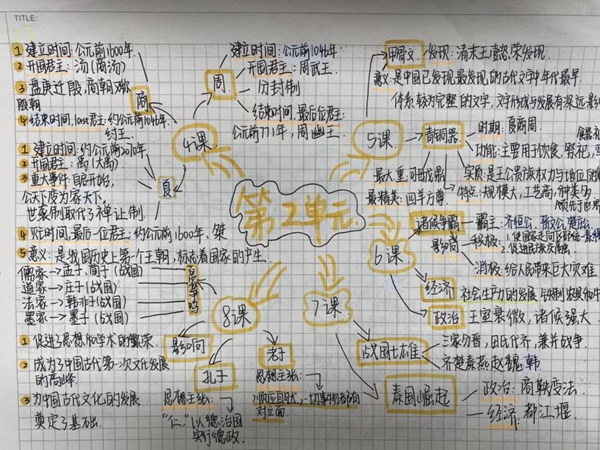 TITLE:
①建立时间:公元前1600年
②开国君主:汤(商汤)
③盘庚迁殷,商朝又称
殷朝
④结束时间,last君主:约公元前1046年
纣王.
商
建立时间:公元前1046年
开国君主:周武王
分封制
结束时间,最后一位君主:
公元前771年,周幽王.
周
4课
①建立时间:约公元前2070年
②开国君主:禹(大禹)
③重大事件:自启开始,
公天下变为家天下,
世袭制取代了禅让制.
④灭亡时间,最后一位君主:约公元前1600年,桀
⑤意义:是我国历史上第一个王朝,标志着国家的产生.
夏
第2单元
5课
甲骨文
发现:清末王懿荣发现
意义:是中国已发现最早的古代文字中年代最早
体系较为完整的文字,文字形成与发展有深远影
青铜器
时期:夏商周
功能:主要用于饮食,祭祀,
最大重:司母戊鼎
最精美:四羊方尊
特点:规模大,工艺高,种类多
6课
诸侯争霸
霸主:齐桓公,晋文公,楚庄公
影响
积极:
消极:给人民带来巨大灾难
经济
社会生产力的发展
政治
王室衰微,诸侯强大
7课
战国七雄
三家分晋,田氏代齐,兼并战争
齐楚秦燕赵魏韩
秦国崛起
政治:商鞅变法
经济:都江堰
8课
百家争鸣
儒家→孟子,荀子(战国)
道家→庄子(战国)
法家→韩非子(战国)
墨家→墨子(战国)
影响
①促进了思想和学术的繁荣
②成为了中国古代第一次文化发展
的高峰
③为中国古代文化的发展
奠定了基础.
孔子
思想主张:
"仁",以德治国
实行德政.
老子
思想主张:
对立面